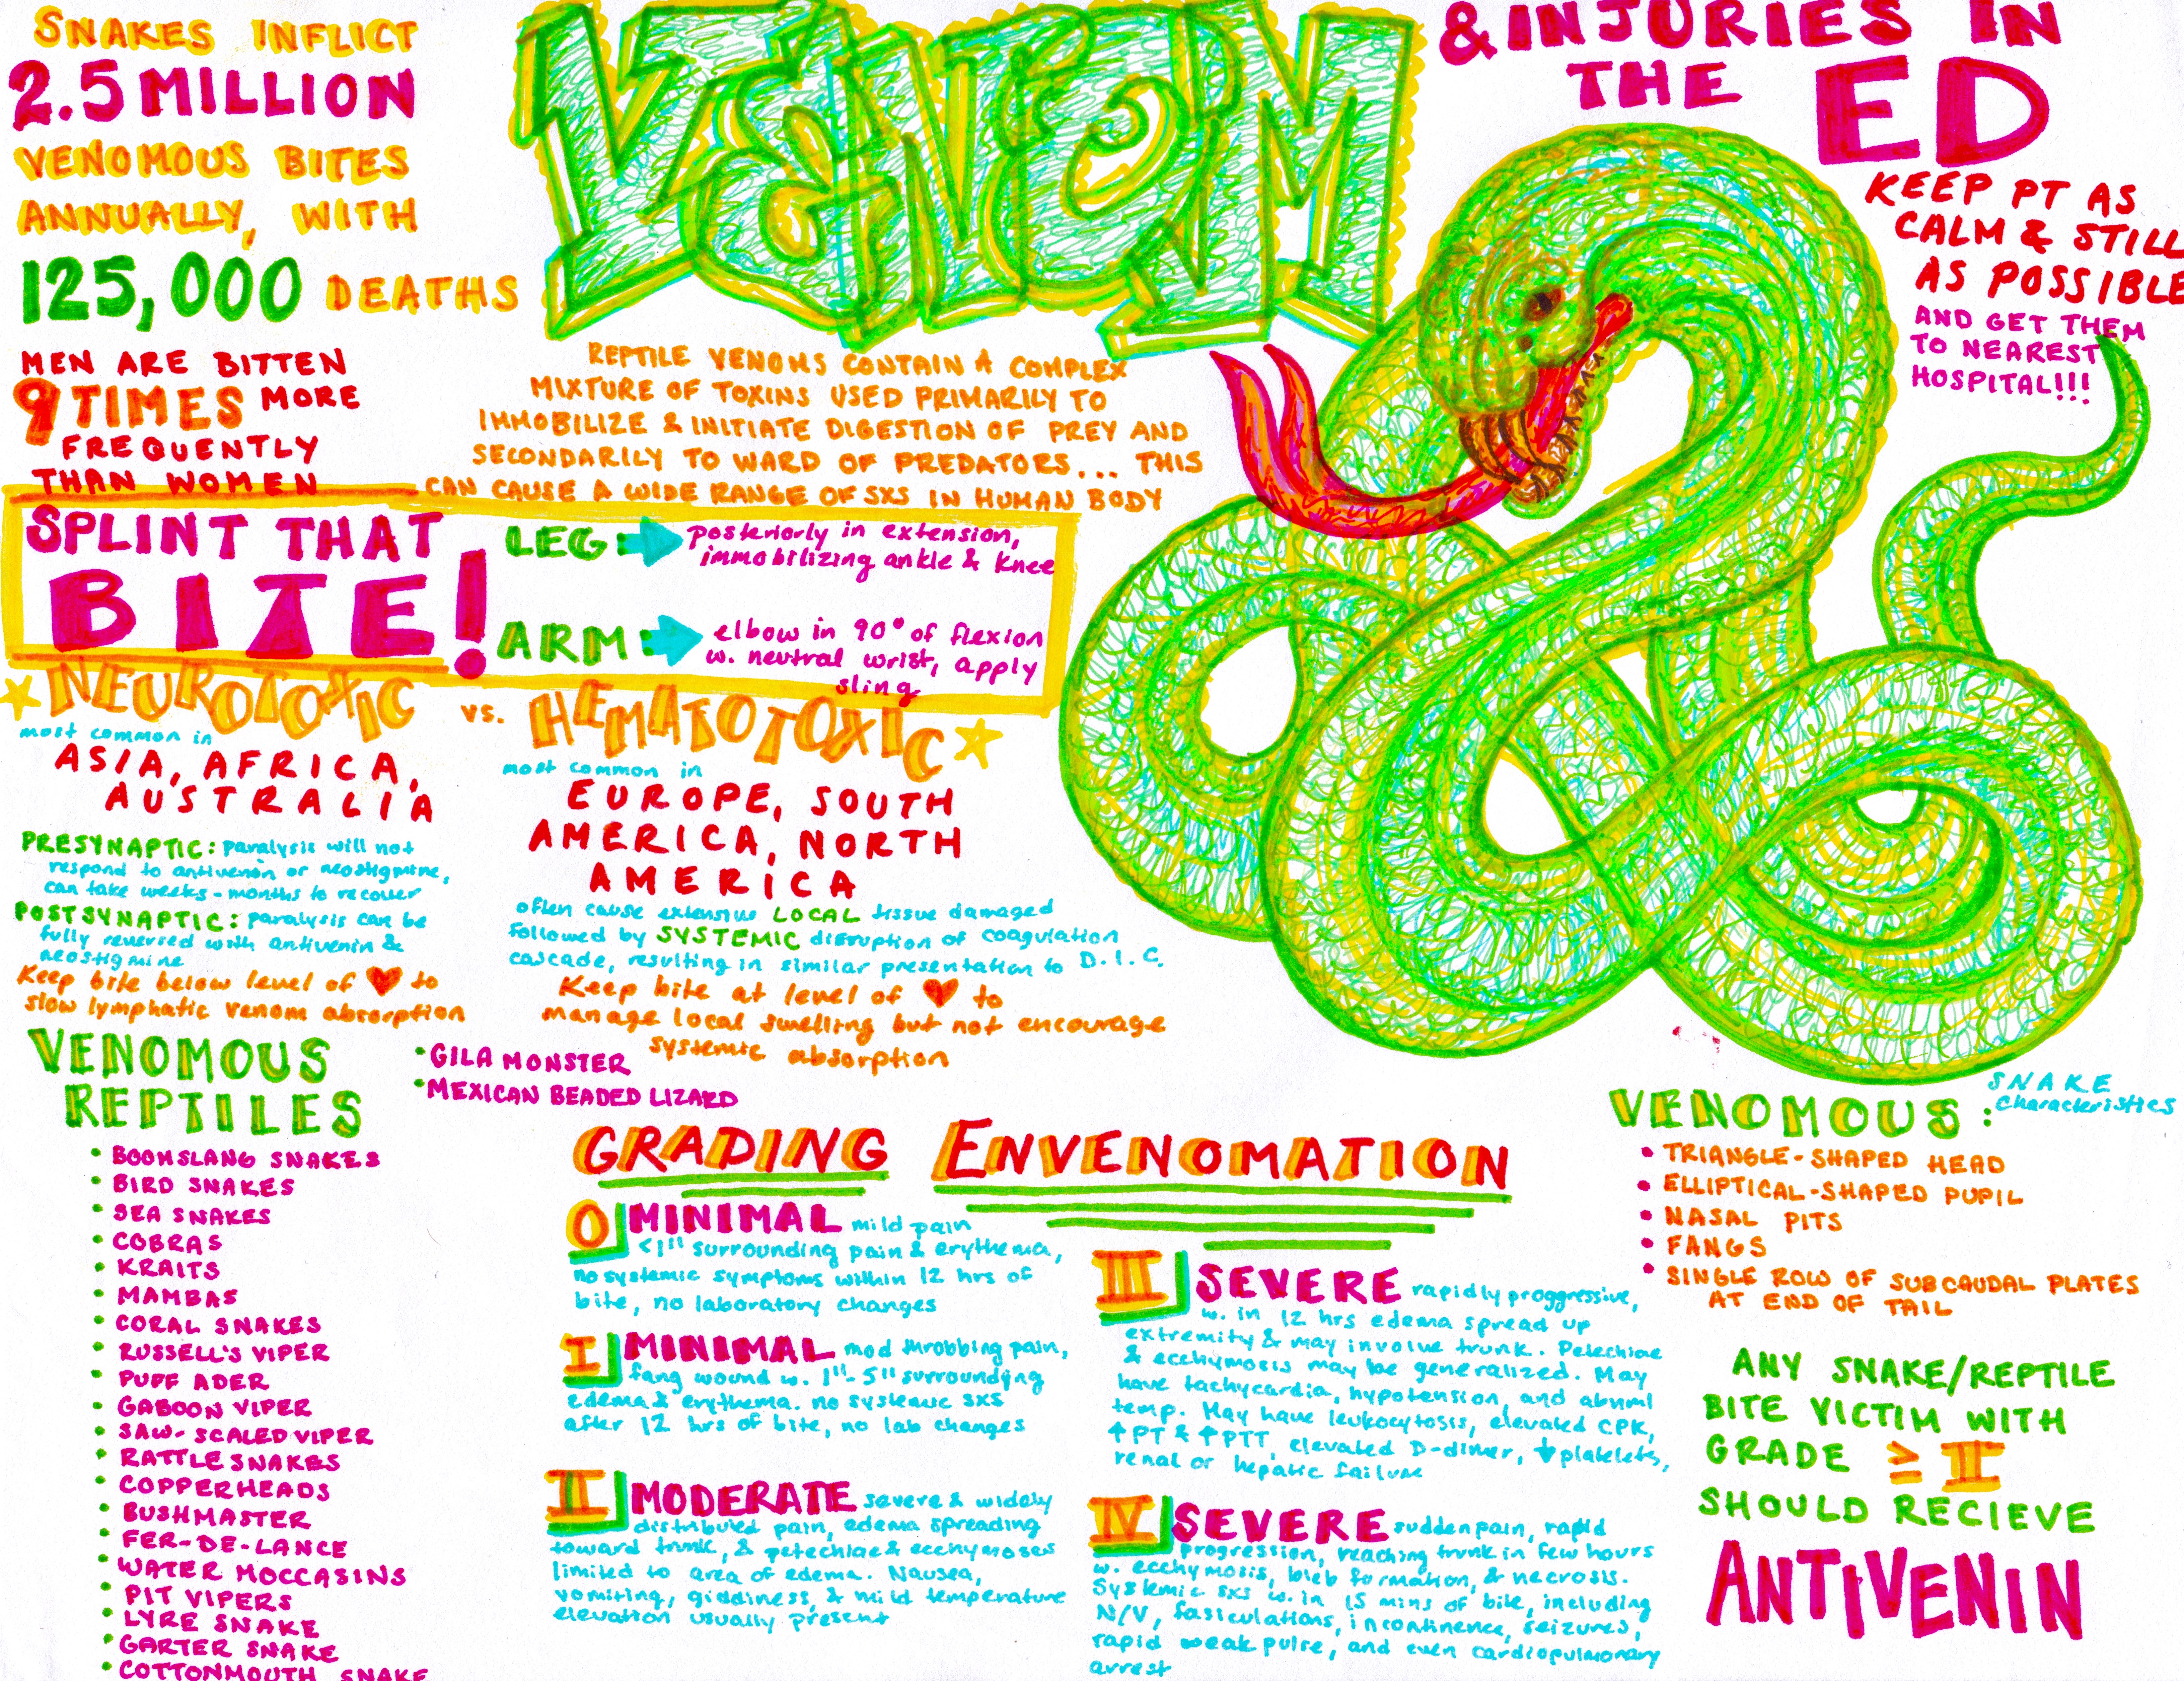 SNAKES INFLICT
2.5 MILLION
VENOMOUS BITES
ANNUALLY, WITH
125,000 DEATHS
MEN ARE BITTEN
9 TIMES MORE
FREQUENTLY
THAN WOMEN
VENOM
& INJURIES IN
THE ED
KEEP PT AS
CALM & STILL
AS POSSIBLE
AND GET THEM
TO NEAREST
HOSPITAL!!!
REPTILE VENOMS CONTAIN A COMPLEX
MIXTURE OF TOXINS USED PRIMARILY TO
IMMOBILIZE & INITIATE DIGESTION OF PREY AND
SECONDARILY TO WARD OF PREDATORS... THIS
CAN CAUSE A WIDE RANGE OF SXS IN HUMAN BODY
SPLINT THAT
BITE!
LEG posteriorly in extension,
immobilizing ankle & knee
ARM elbow in 90° of flexion
w. neutral wrist, apply
sling
NEUROTOXIC
vs.
HEMATOTOXIC
most common in
ASIA, AFRICA,
AUSTRALIA
PRESYNAPTIC: paralysis will not
respond to antivenin or neostigmine,
can take weeks - months to recover
POSTSYNAPTIC: paralysis can be
fully reversed with antivenin &
neostigmine
Keep bite below level of ♥ to
slow lymphatic venom absorption
most common in
EUROPE, SOUTH
AMERICA, NORTH
AMERICA
often cause extensive LOCAL tissue damaged
followed by SYSTEMIC disruption of coagulation
cascade, resulting in similar presentation to D.I.C.
Keep bite at level of ♥ to
manage local swelling but not encourage
systemic absorption
VENOMOUS
REPTILES
• GILA MONSTER
• MEXICAN BEADED LIZARD
• BOOMSLANG SNAKES
• BIRD SNAKES
• SEA SNAKES
• COBRAS
• KRAITS
• MAMBAS
• CORAL SNAKES
• RUSSELL'S VIPER
• PUFF ADER
• GABOON VIPER
• SAW-SCALED VIPER
• RATTLESNAKES
• COPPERHEADS
• BUSHMASTER
• FER-DE-LANCE
• WATER MOCCASINS
• PIT VIPERS
• LYRE SNAKE
• GARTER SNAKE
• COTTONMOUTH SNAKE
GRADING ENVENOMATION
0 MINIMAL mild pain
<1" surrounding pain & erythema,
no systemic symptoms within 12 hrs of
bite, no laboratory changes
I MINIMAL mod throbbing pain,
fang wound w. 1"-5" surrounding
edema & erythema. no systemic sxs
after 12 hrs of bite, no lab changes
II MODERATE severe & widely
distributed pain, edema spreading
toward trunk, & petechiae & ecchymoses
limited to area of edema. Nausea,
vomiting, giddiness, & mild temperature
elevation usually present
III SEVERE rapidly proggressive,
w. in 12 hrs edema spread up
extremity & may involve trunk. Petechiae
& ecchymosis may be generalized. May
have tachycardia, hypotension, and abnml
temp. May have leukocytosis, elevated CPK,
↑PT & ↑PTT, elevated D-dimer, ↓platelets,
renal or hepatic failure
IV SEVERE sudden pain, rapid
progression, reaching trunk in few hours
w. ecchymosis, bleb formation, & necrosis.
Systemic sxs w. in 15 mins of bite, including
N/V, fasiculations, incontinence, seizures,
rapid weak pulse, and even cardiopulmonary
arrest
SNAKE
characteristics
VENOMOUS:
• TRIANGLE-SHAPED HEAD
• ELLIPTICAL-SHAPED PUPIL
• NASAL PITS
• FANGS
• SINGLE ROW OF SUBCAUDAL PLATES
AT END OF TAIL
ANY SNAKE/REPTILE
BITE VICTIM WITH
GRADE ≥ II
SHOULD RECIEVE
ANTIVENIN